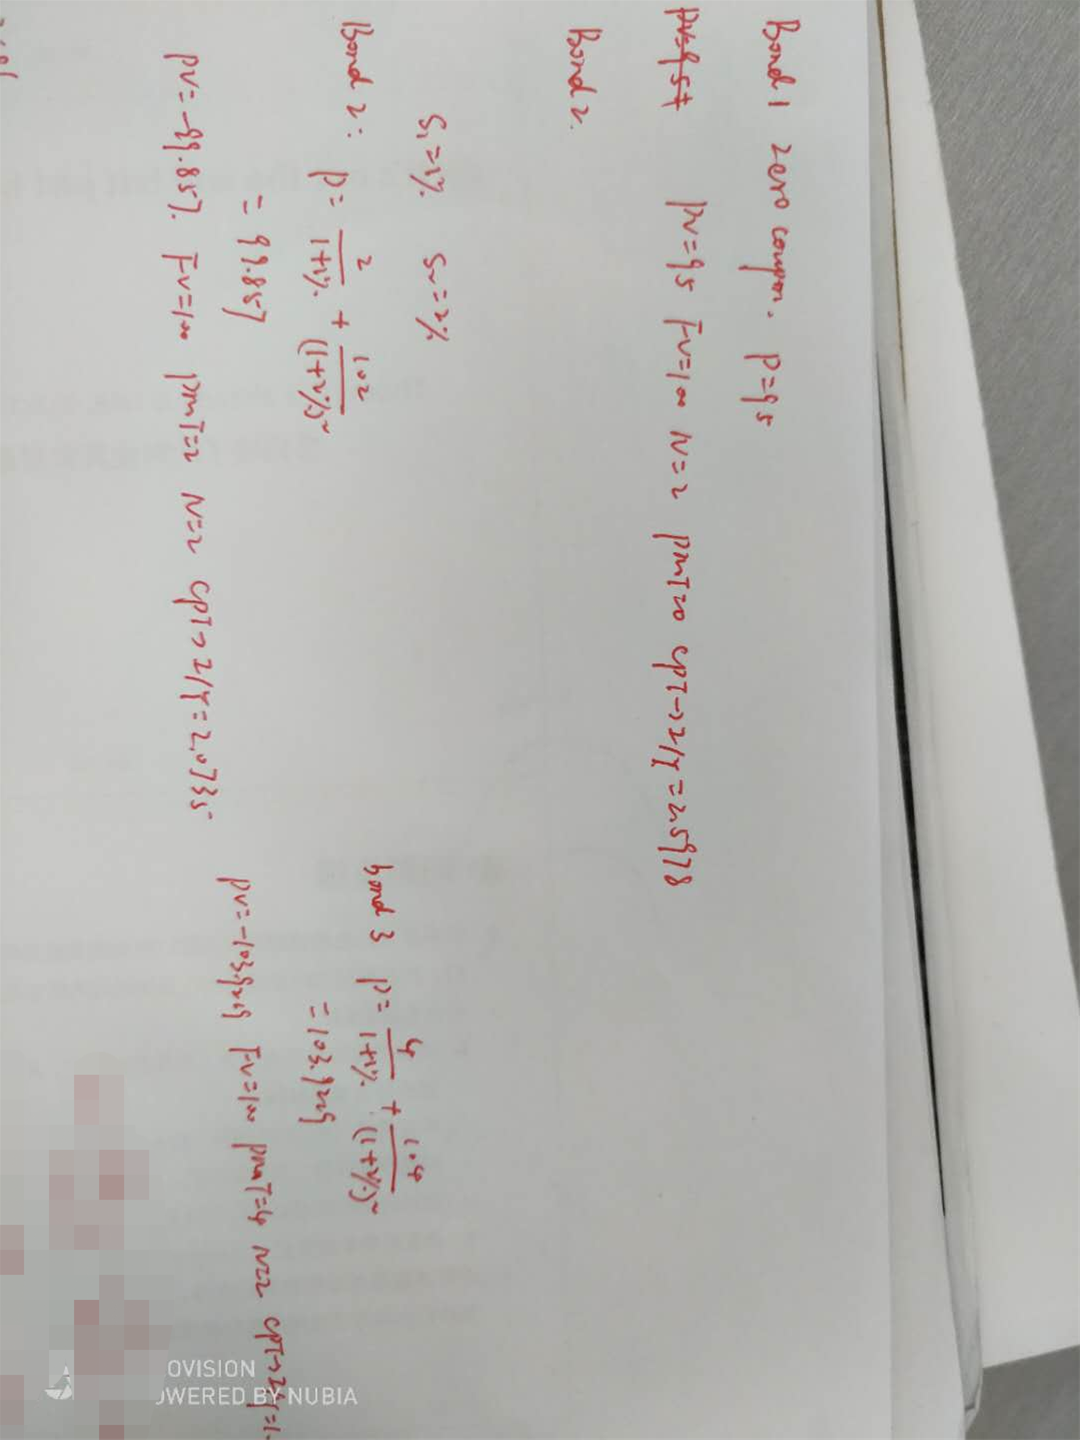 Bond 1 zero coupon. P=95
PV=95 FV=100 N=2 PMT=0 CPT→I/Y=2.5978
Bond 2.
S₁=1% S₂=2%
Bond 2: P= 2/(1+1%) + 102/(1+2%)²
= 99.857
PV=-99.857. FV=100 PMT=2 N=2 CPT→I/Y=2.0735
bond 3 P= 4/(1+1%) + 104/(1+2%)²
=103.9229
PV=-103.9229 FV=100 PMT=4 N=2 CPT→I/Y=1.
OVISION
OWERED BY NUBIA